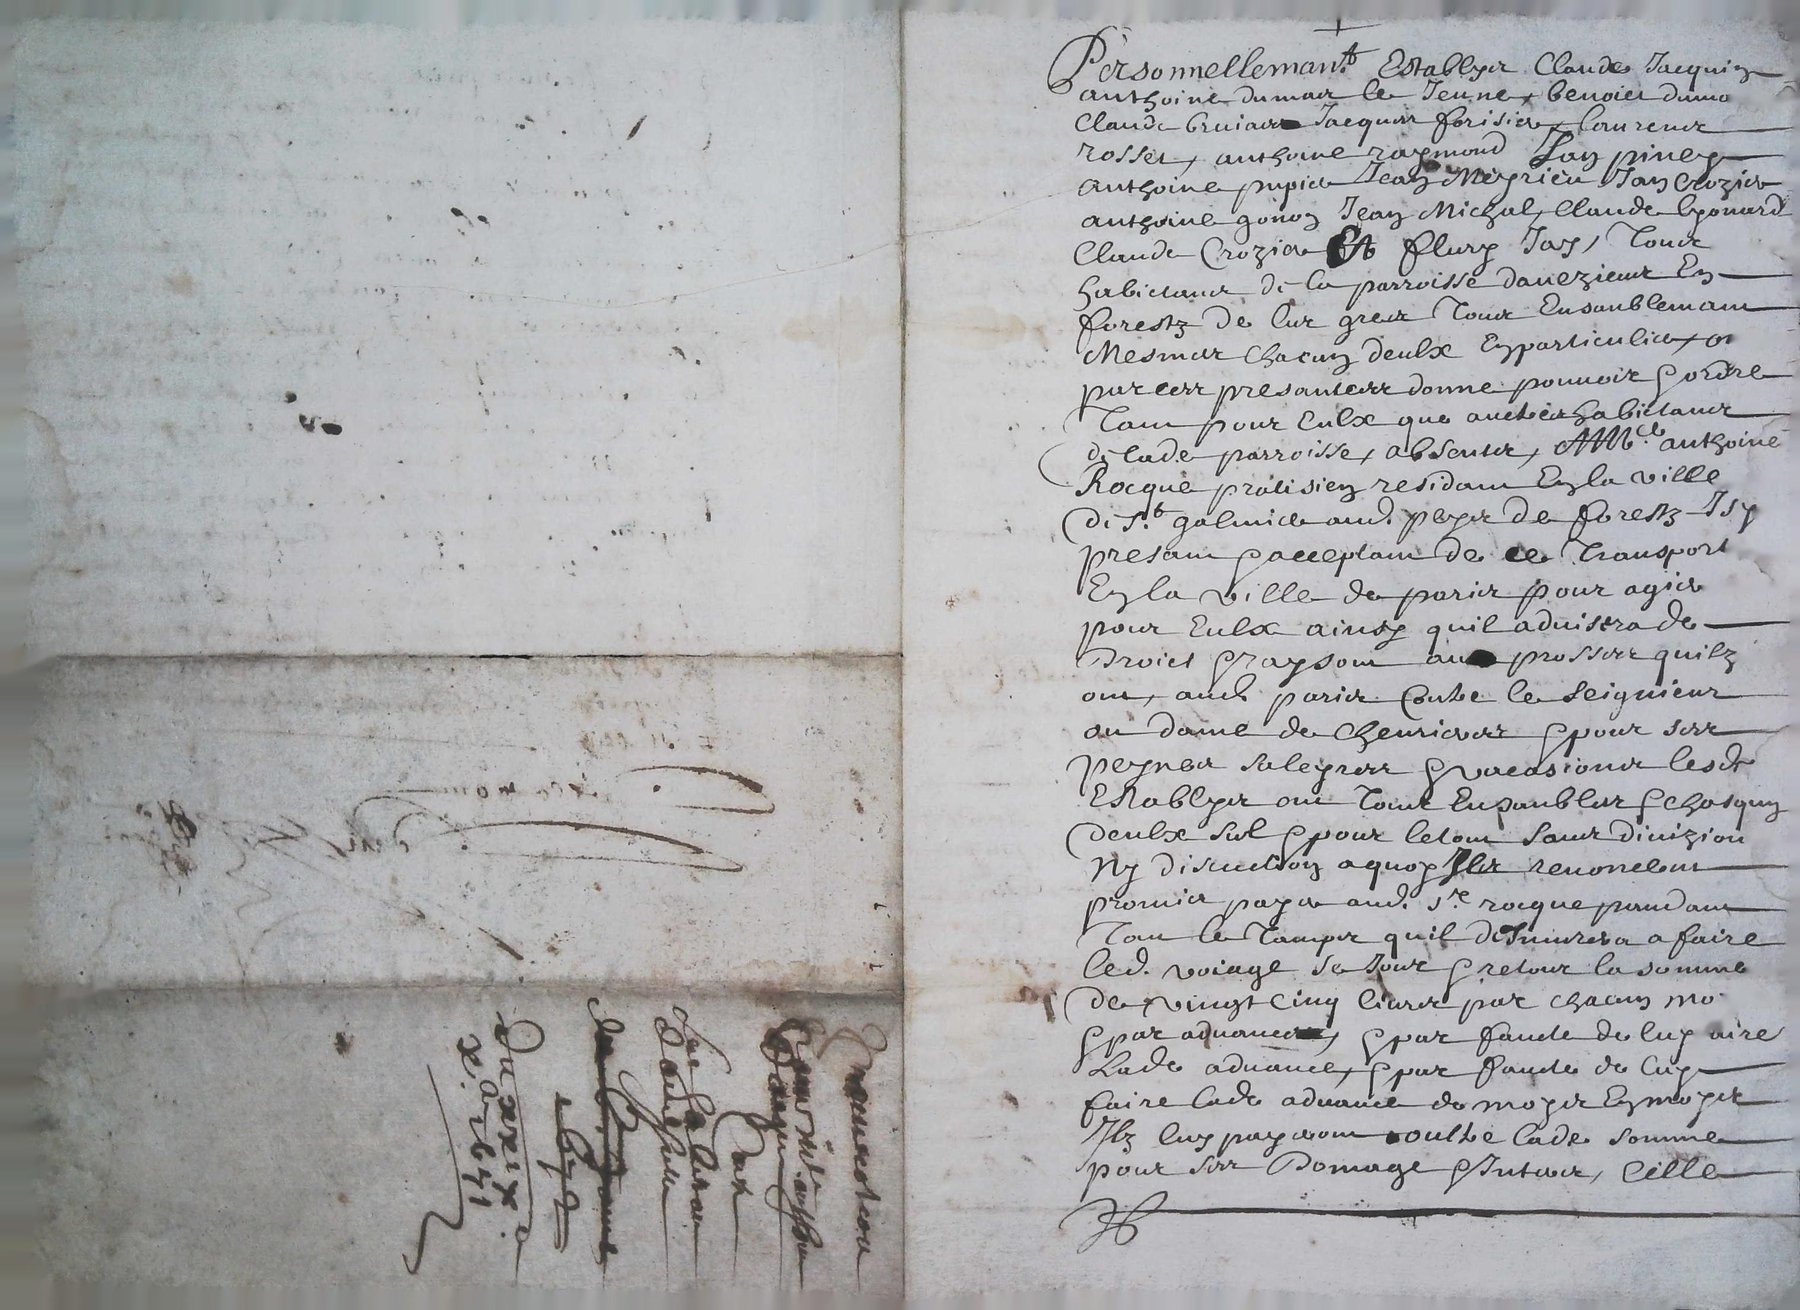 Personnellemant Establyes Claude Jacquin
anthoine dumas le Jeune, benoict dumo
Claude bruiaes Jacques forisier, laurence
rosset, anthoine raymond Jan piney
anthoine pupier Jean Meyrieu Jan Crozier
anthoine gonon Jean Michal, Claude lyonard
Claude Crozier Et flury Jay, Tous
habictans de la parroisse davezieux En
forestz de lur grez Tous Ensanblemant
Mesmes chacung deulx En particulier, on
par ces presantes donne pouvoir & ordre
Tant pour Eulx que aultres habictans
de lade parroisse, absents, anthoine
Rocque pratisien residant En la ville
de St galmier aud. pays de forestz Isy
presant & acceptant de ce Transport
En la ville de paris pour agir
pour Eulx ainsy quil advisera de
Droict & raysont aux prosses quilz
ont, aud paris Contre le seignieur
ou dame de chenrieres & pour ses
peynes saleyres & vacasions lesde
Establyes ont Tous Ensanbles & chasqung
deulx sul & pour letout sans divizion
Ny discution a quoy Ilz renoncent
promis payer aud. sr. rocque pandant
Tout le Tamps quil demurera a faire
led. voiage sejour & retour la somme
de vingt cinq livres par chacun mo
& par advance, & par faulte de luy aire
Lade advance, & par faulte de luy
faire lade advance de moys En moys
Ilz luy payeront oultre lade somme
pour ses Domage & Intres, Celle
procuration
pour Mr anthoine
Rocque
par
Les habitans
Daveisieu
1672
Du xxix
x. 1671